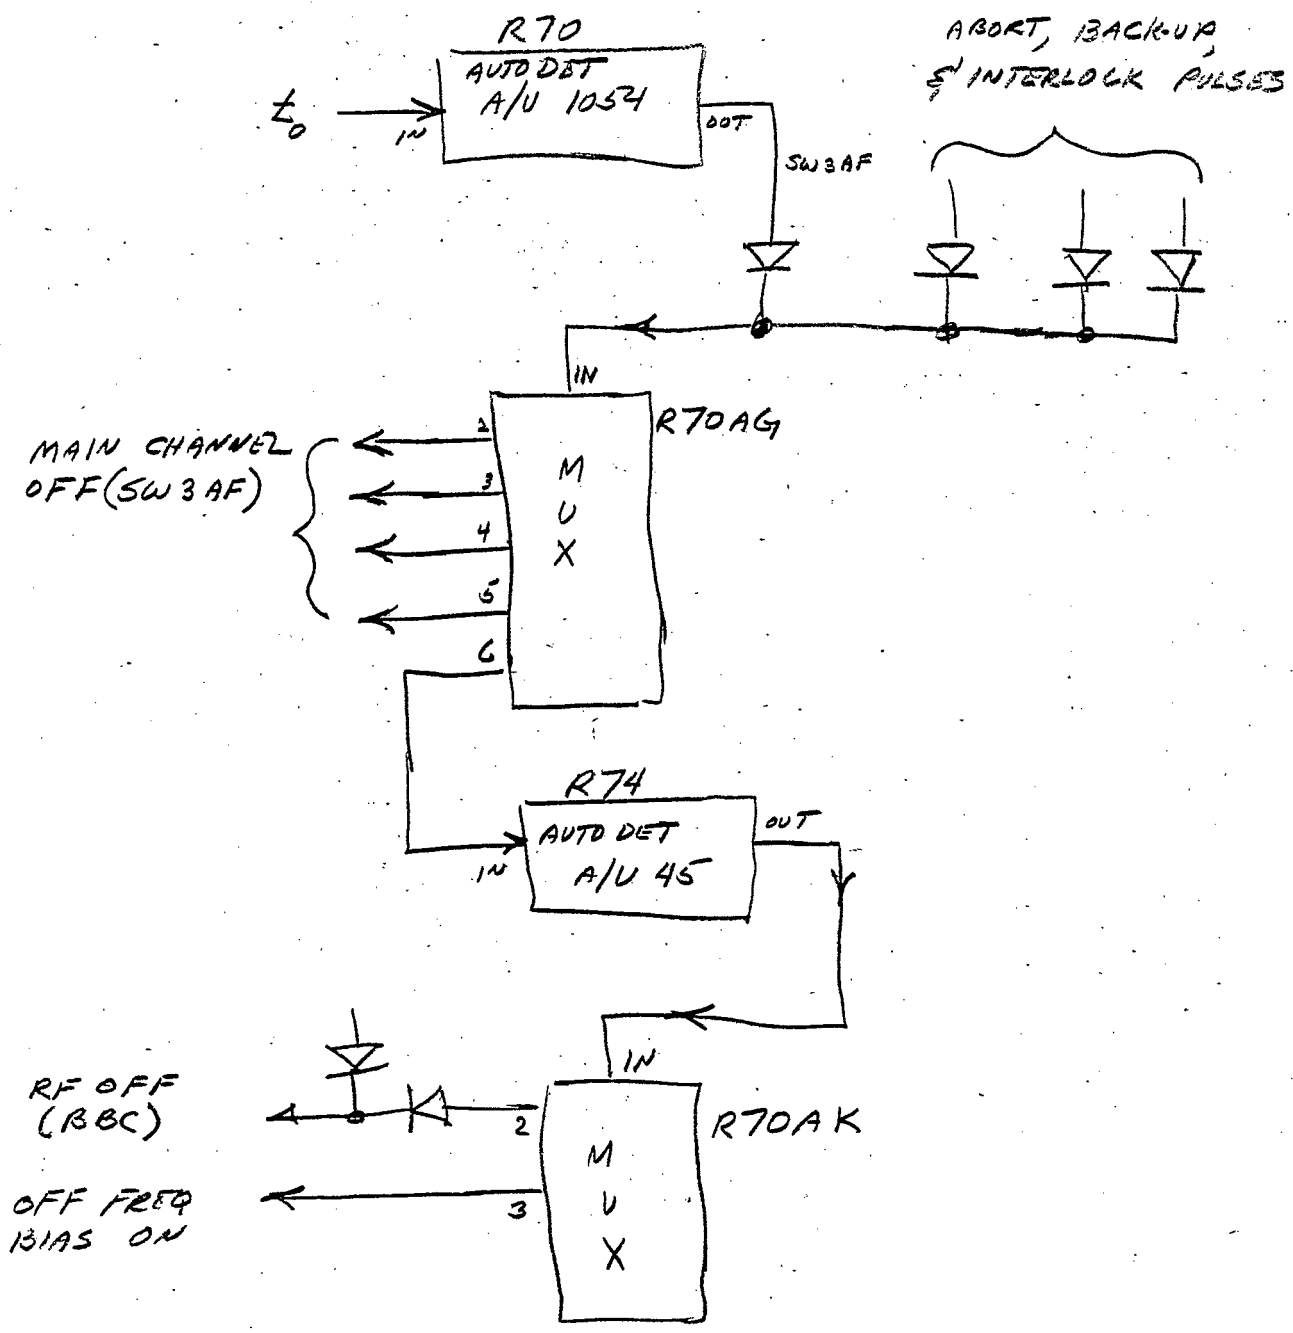 R70
AUTO DET
A/U 1054
t₀
IN
OUT
SW3AF
ABORT, BACK-UP,
& INTERLOCK PULSES
IN
R70AG
MAIN CHANNEL
OFF (SW3AF)
2
3
4
5
6
M
U
X
R74
AUTO DET
A/U 45
IN
OUT
IN
R70AK
RF OFF
(BBC)
2
OFF FREQ
BIAS ON
3
M
U
X